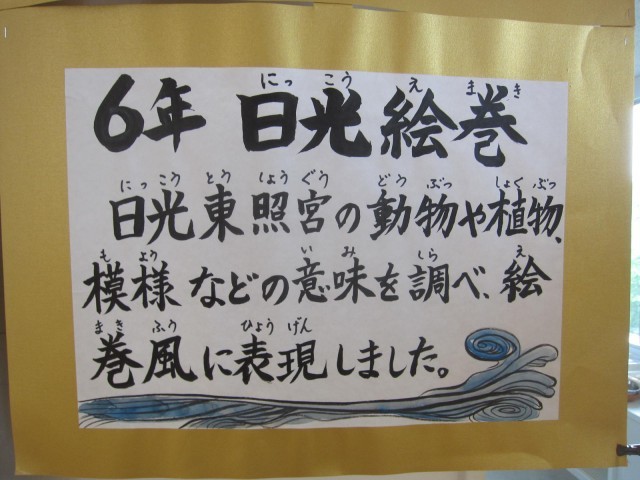 にっこう え まき
6年 日光絵巻
にっこうとうしょうぐう どうぶつ しょくぶつ
日光東照宮の動物や植物、
もよう いみ しら え
模様などの意味を調べ、絵
まきふう ひょうげん
巻風に表現しました。